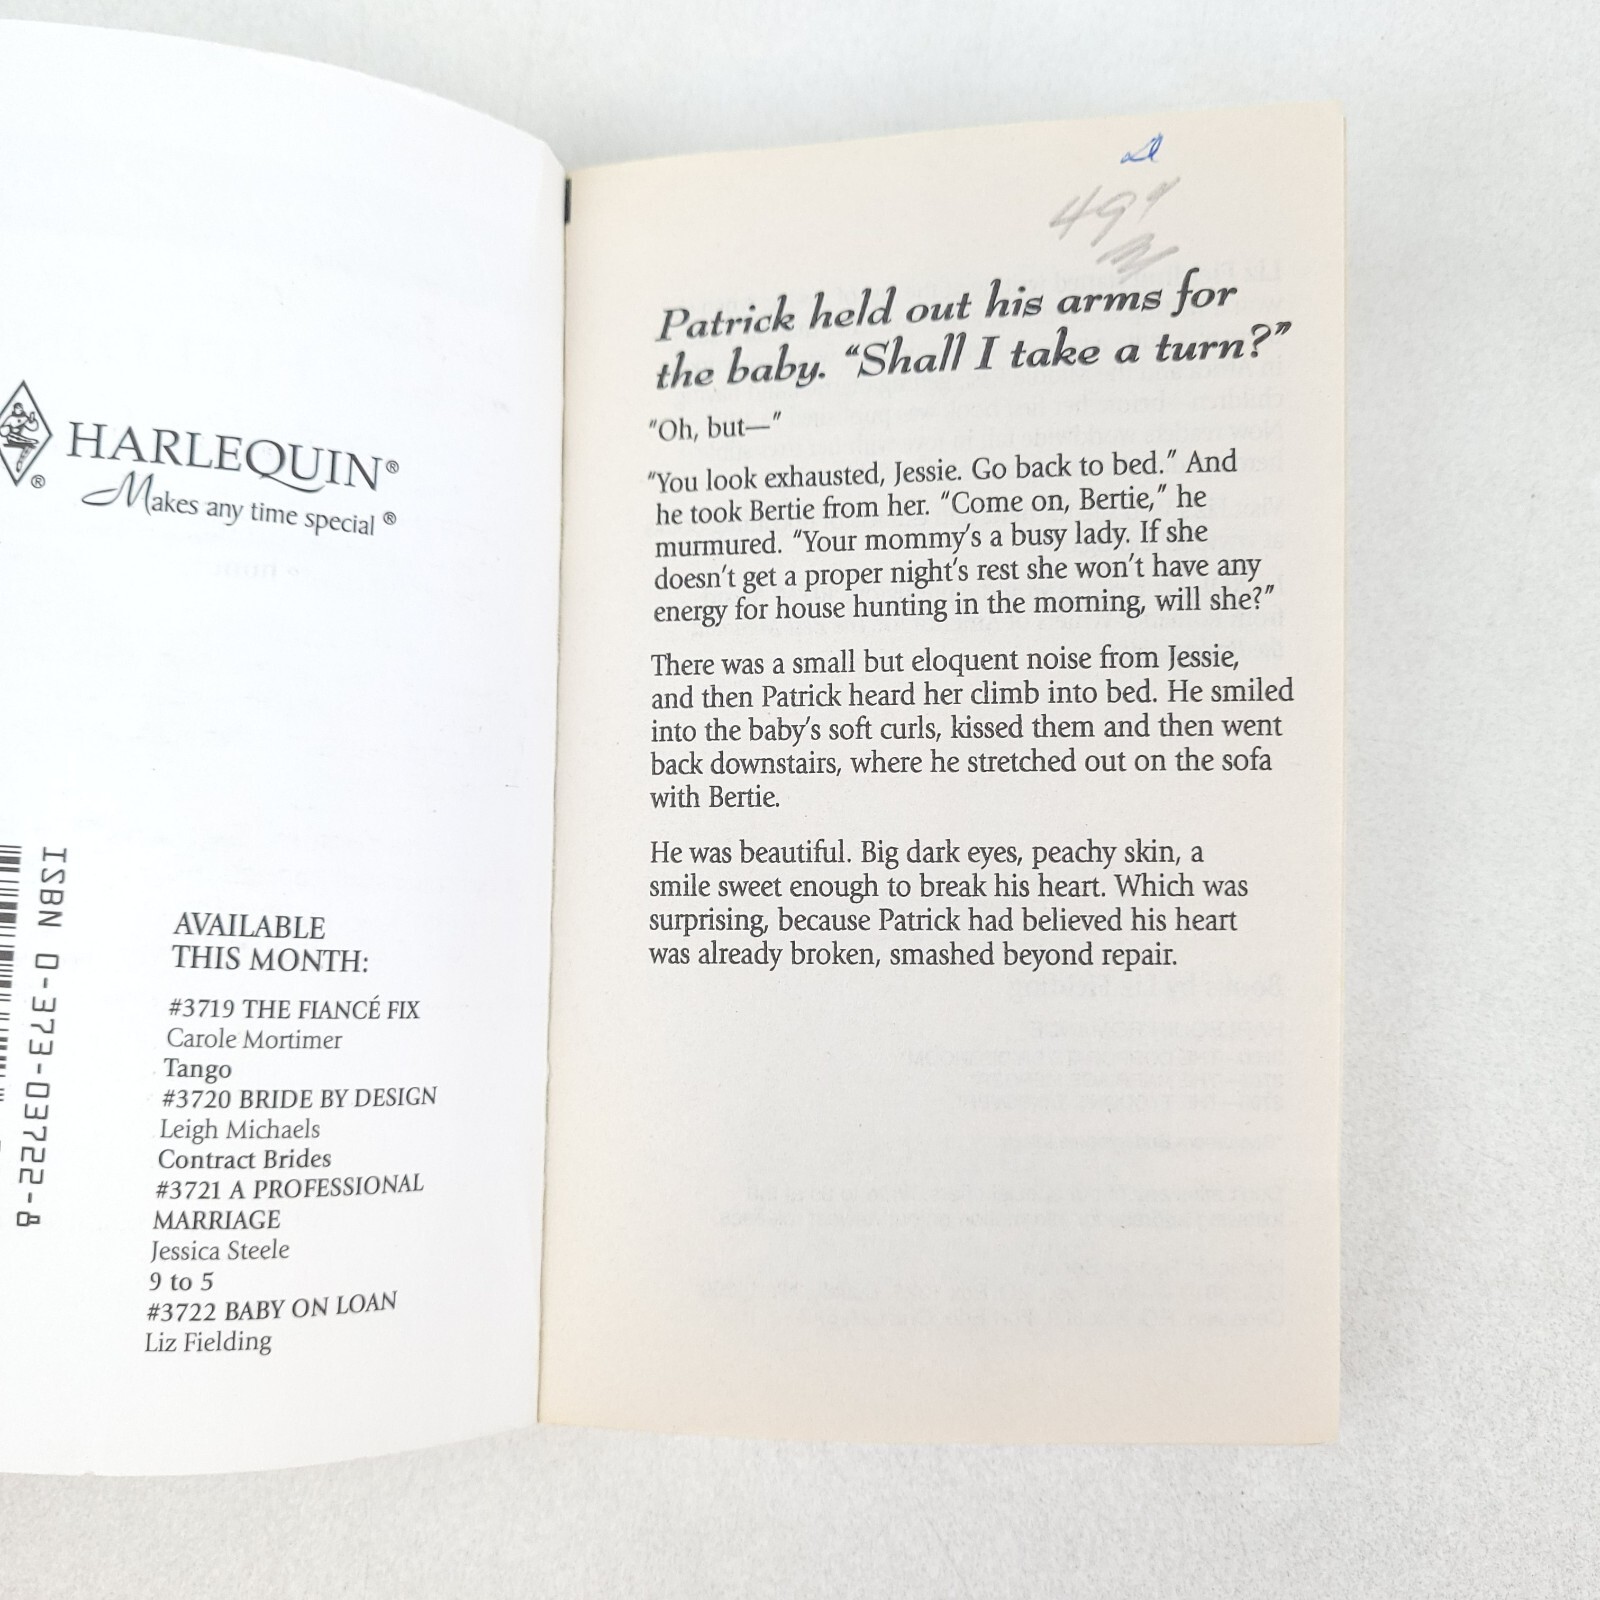 HARLEQUIN®
Makes any time special ®
®
ISBN 0-373-03722-8
AVAILABLE
THIS MONTH:
#3719 THE FIANCÉ FIX
Carole Mortimer
Tango
#3720 BRIDE BY DESIGN
Leigh Michaels
Contract Brides
#3721 A PROFESSIONAL
MARRIAGE
Jessica Steele
9 to 5
#3722 BABY ON LOAN
Liz Fielding
Patrick held out his arms for
the baby. “Shall I take a turn?”
"Oh, but—"
"You look exhausted, Jessie. Go back to bed." And
he took Bertie from her. "Come on, Bertie," he
murmured. "Your mommy's a busy lady. If she
doesn't get a proper night's rest she won't have any
energy for house hunting in the morning, will she?"
There was a small but eloquent noise from Jessie,
and then Patrick heard her climb into bed. He smiled
into the baby's soft curls, kissed them and then went
back downstairs, where he stretched out on the sofa
with Bertie.
He was beautiful. Big dark eyes, peachy skin, a
smile sweet enough to break his heart. Which was
surprising, because Patrick had believed his heart
was already broken, smashed beyond repair.